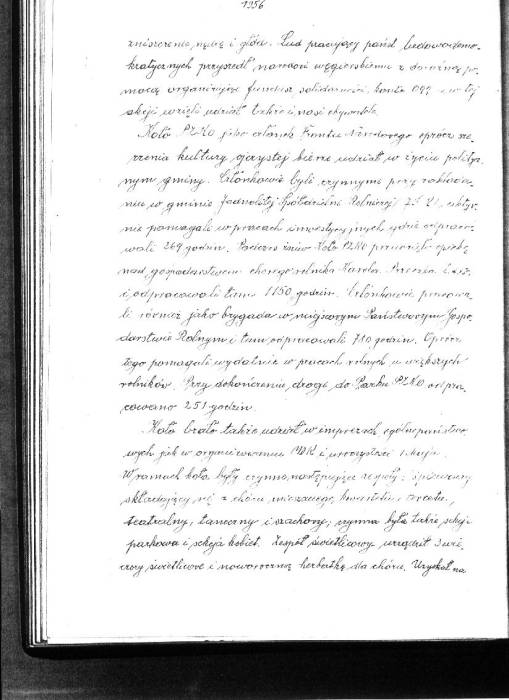 1956
zniszczenie, nędzę i głód. Lud pracujący państ ludowodemo-
kratycznych przyszedł narodowi węgierskiemu z doraźną po-
mocą organizując fundusz solidarności, konta 099 i w tej
akcji wzięli udział także i nasi obywatele.
Koło PZKO jako członek Frontu Narodowego oprócz sze-
rzenia kultury ojczystej bierze udział w życiu politycz-
nym gminy. Członkowie byli czynnymi przy zakłada-
niu w gminie Jednolitej Spółdzielni Rolniczej
nie pomagali w pracach inwestycyjnych gdzie odpraco-
wali 269 godzin. Podczas żniw Koło PZKO przejęło opiekę
nad gospodarstwem chorego rolnika Karola
i odpracowali tam 1150 godzin. Członkowie pracowa-
li również jako brygada w miejscowym Państwowym Gospo-
darstwie Rolnym i tam odpracowali 780 godzin. Oprócz
tego pomagali wydatnie w pracach rolnych u większych
rolników. Przy dokończeniu drogi do Parku PZKO odpra-
cowano 251 godzin.
Koło brało także udział w imprezach ogólnopaństwo-
wych jak w organizowaniu MDK i uroczystości 1. maja.
W ramach koła były czynne następujące zespoły: śpiewaczy
składający się z chóru mieszanego, kwartetu i
teatralny, taneczny i szachowy; czynna była także sekcja
parkowa i sekcja kobiet. Zespół świetlicowy urządził 3 wie-
czory świetlicowe i noworoczną herbatkę dla chóru. Uzyskał na